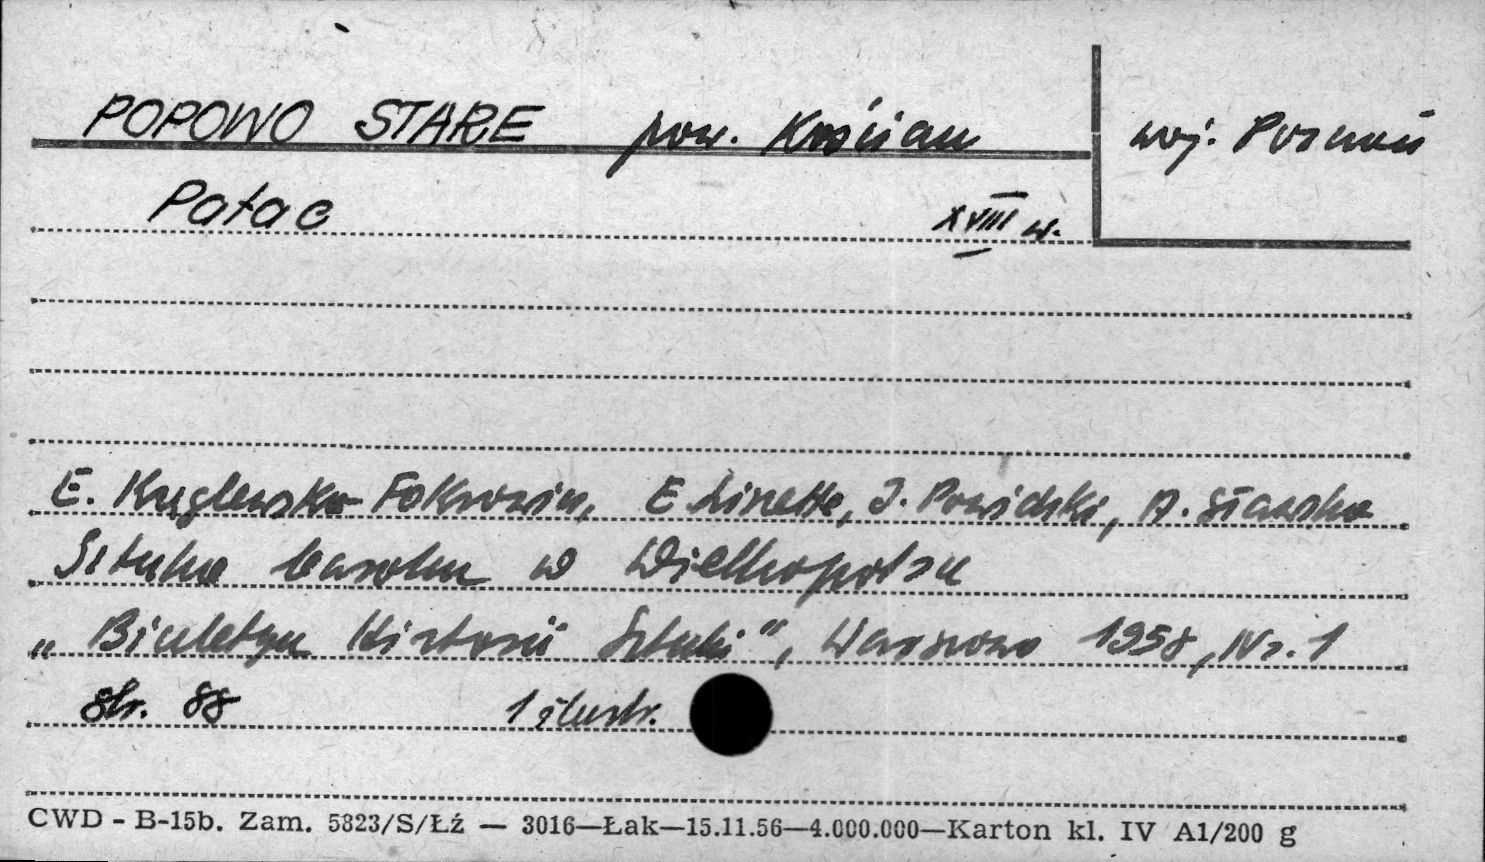 POPOWO STARE pow. Kościan woj. Poznań
Pałac XVIII w.
E. Kręglewska Foksowicz, E Linette, J. Powidzki, A. Sławska
Sztuka baroku w Wielkopolsce
„Biuletyn Historii Sztuki", Warszawa 1958, Nr. 1
str. 88 1 ilustr.
CWD - B-15b. Zam. 5823/S/Łź — 3016—Łak—15.11.56—4.000.000—Karton kl. IV A1/200 g